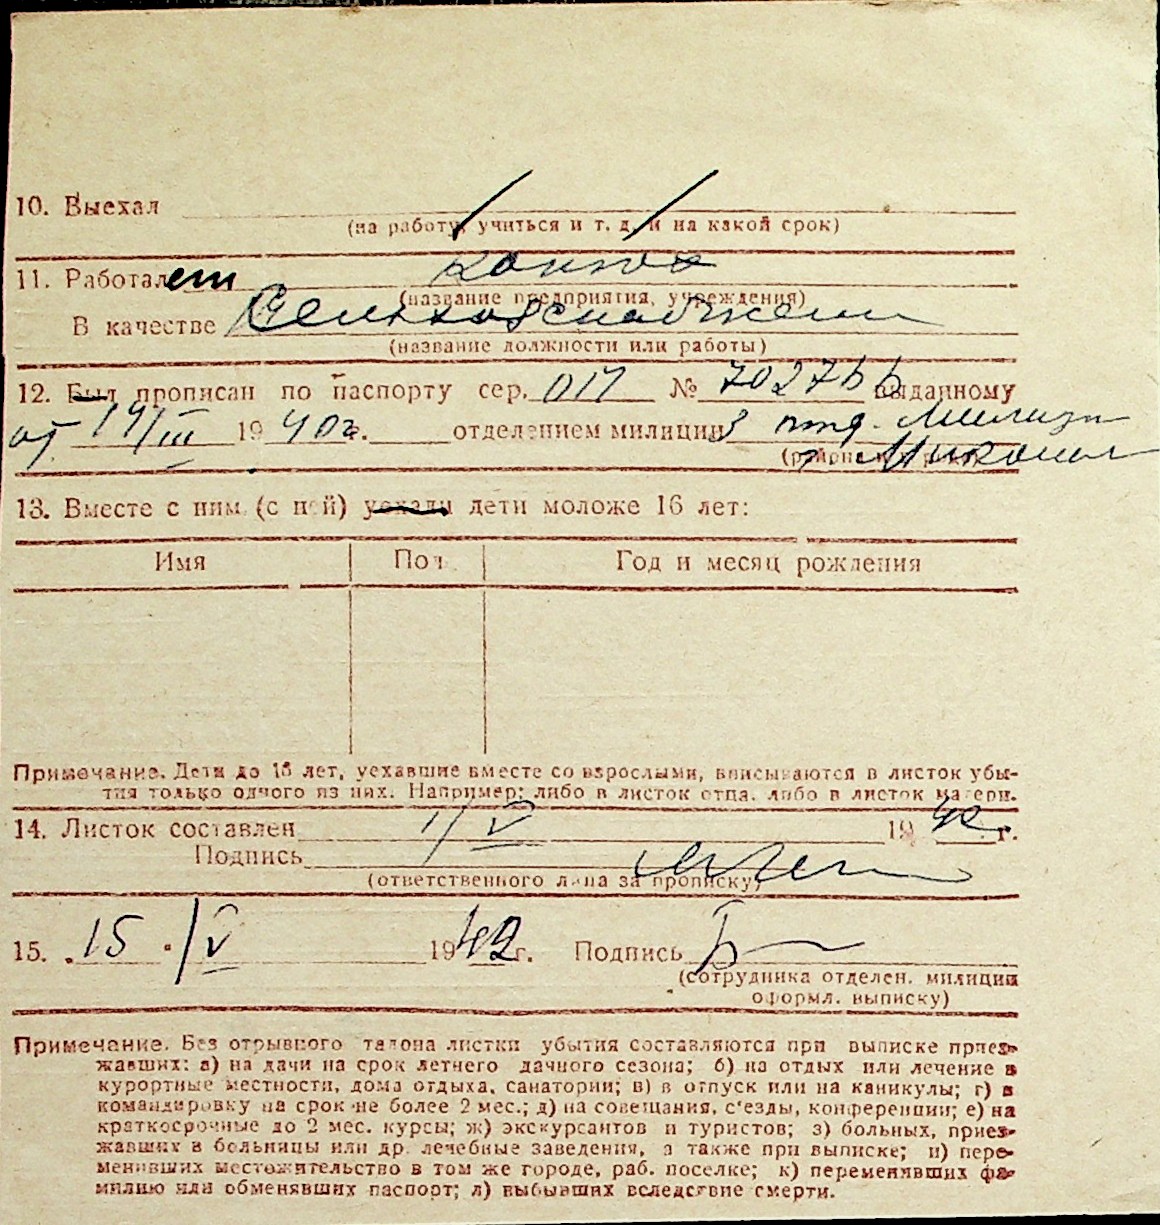 10. Выехал
(на работу, учиться и т. д. и на какой срок)
11. Работает контора
(название предприятия, учреждения)
В качестве
(название должности или работы)
12. Был прописан по паспорту сер. 017 № 702766 выданному
от 14/III 1940г. отделением милиции 3 отд. Милиции
(района, города)
г. Никополь
13. Вместе с ним (с ней) уехали дети моложе 16 лет:
Имя Пол Год и месяц рождения
Примечание. Дети до 16 лет, уехавшие вместе со взрослыми, вписываются в листок убы-
тия только одного из них. Например: либо в листок отца, либо в листок матери.
14. Листок составлен 1/V 1942г.
Подпись
(ответственного лица за прописку)
15. 15/V 1942г. Подпись
(сотрудника отделен. милиции
оформл. выписку)
Примечание. Без отрывного талона листки убытия составляются при выписке приез-
жавших: а) на дачи на срок летнего дачного сезона; б) на отдых или лечение в
курортные местности, дома отдыха, санатории; в) в отпуск или на каникулы; г) в
командировку на срок не более 2 мес.; д) на совещания, с'езды, конференции; е) на
краткосрочные до 2 мес. курсы; ж) экскурсантов и туристов; з) больных, приез-
жавших в больницы или др. лечебные заведения, а также при выписке; и) пере-
менивших местожительство в том же городе, раб. поселке; к) переменивших фа-
милию или обменявших паспорт; л) выбывших вследствие смерти.